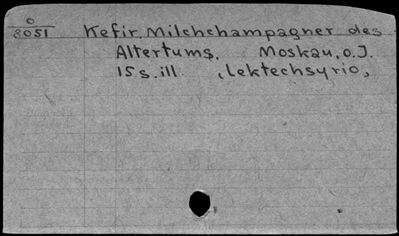 0
8051 Kefir. Milchchampagner des
Altertums. Moskau, o.J.
15 s. ill (Lektechsyrio)